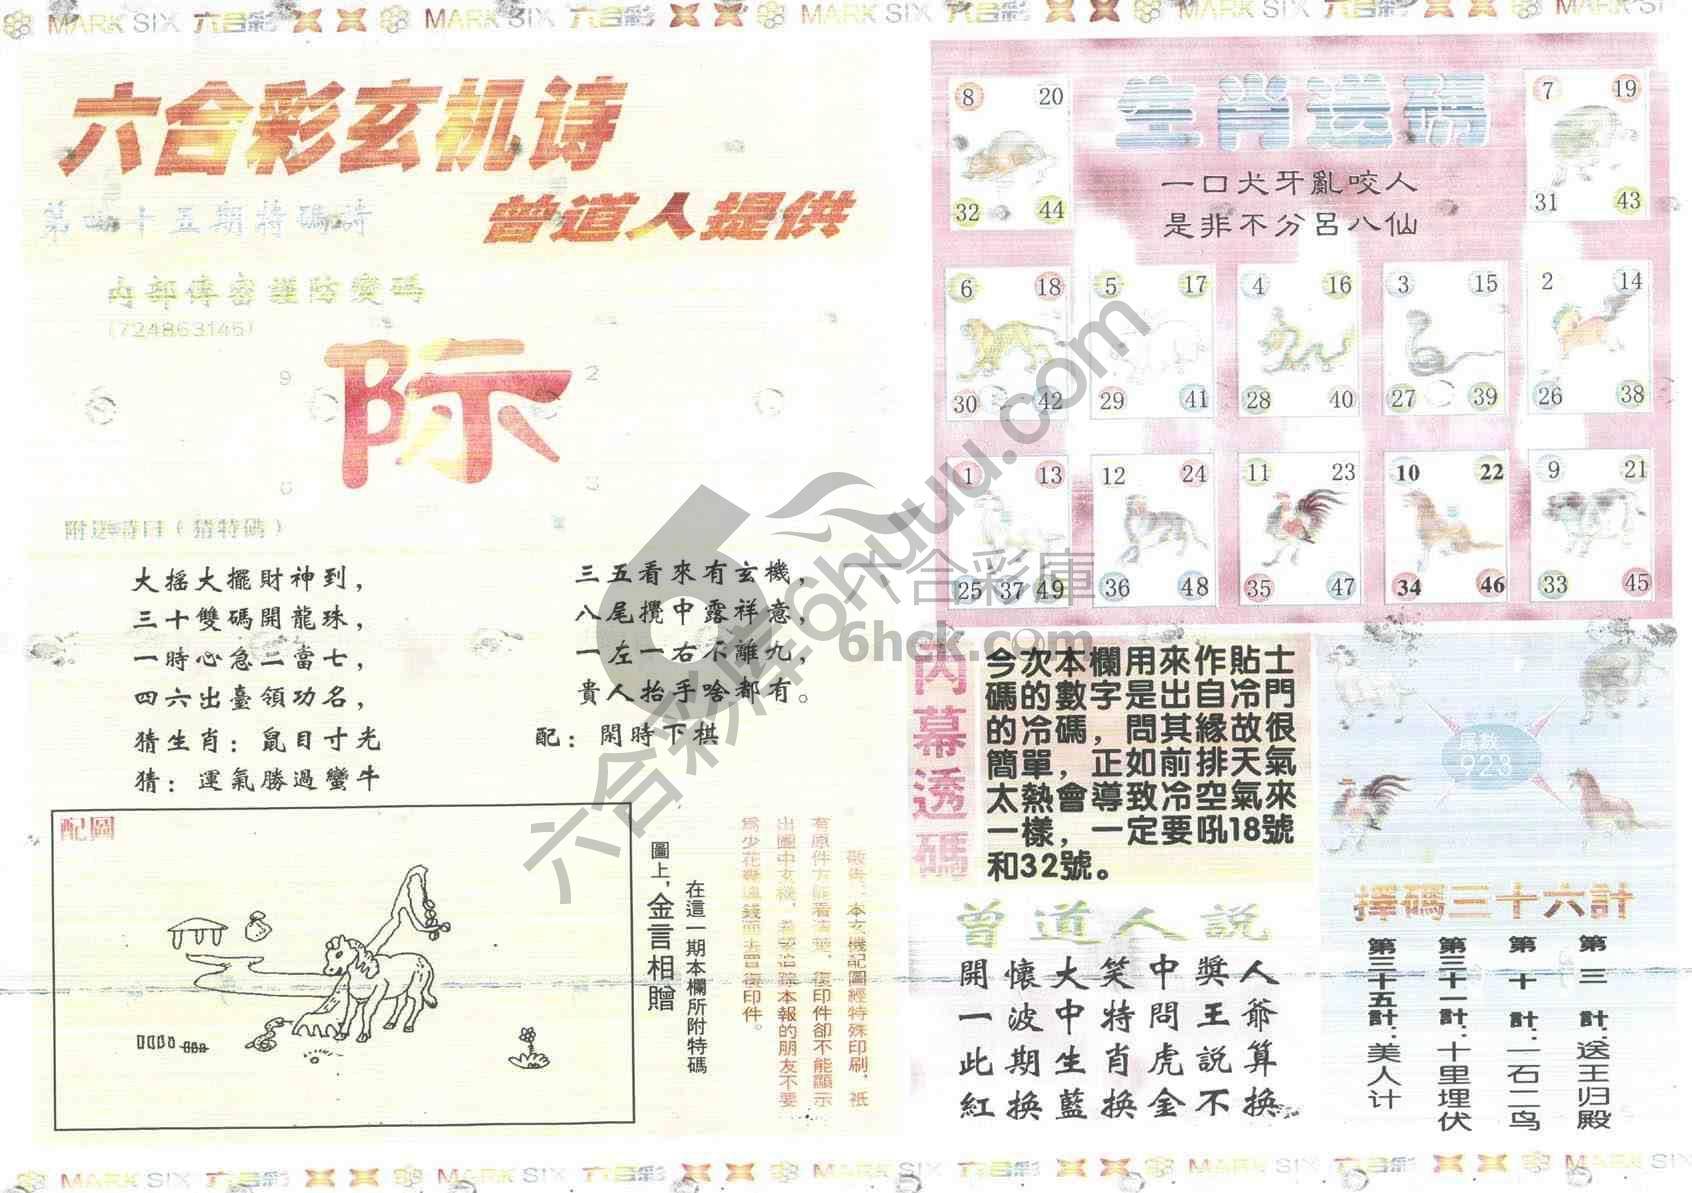 MARK SIX 六合彩 MARK SIX 六合彩 MARK SIX 六合彩 MARK SIX 六合彩 MARK SIX
六合彩玄机诗
曾道人提供
第四十五期特碼詩
內部傳密謹防變碼
(724863145)
9
2
际
6
3
附送詩曰（猜特碼）
大摇大擺財神到，
三十雙碼開龍珠，
一時心急二當七，
四六出臺領功名，
三五看來有玄機，
八尾攪中露祥意，
一左一右不離九，
貴人抬手啥都有。
猜生肖：鼠目寸光
配：閑時下棋
猜：運氣勝過蠻牛
配圖
圖上，金言相贈
在這一期本欄所附特碼
敬告：本玄機配圖經特殊印刷，祇
有原件方能看清楚，復印件卻不能顯示
出圖中玄機，希望追踪本報的朋友不要
為少花幾塊錢而去買復印件。
生肖送碼
一口犬牙亂咬人
是非不分呂八仙
8 20
32 44
7 19
31 43
6 18
30 42
5 17
29 41
4 16
28 40
3 15
27 39
2 14
26 38
1 13
25 37 49
12 24
36 48
11 23
35 47
10 22
34 46
9 21
33 45
內幕透碼
今次本欄用來作貼士
碼的數字是出自冷門
的冷碼，問其緣故很
簡單，正如前排天氣
太熱會導致冷空氣來
一樣，一定要吼18號
和32號。
尾數
923
曾道人説
開懷大笑中獎人
一波中特問王爺
此期生肖虎説算
紅换藍换金不换
擇碼三十六計
第三計：送王归殿
第十計：一石二鸟
第三十一計：十里埋伏
第三十五計：美人计
六合彩库6hkuu.com
六合彩庫
6hck.com
MARK SIX 六合彩 MARK SIX 六合彩 MARK SIX 六合彩 MARK SIX 六合彩 MARK SIX